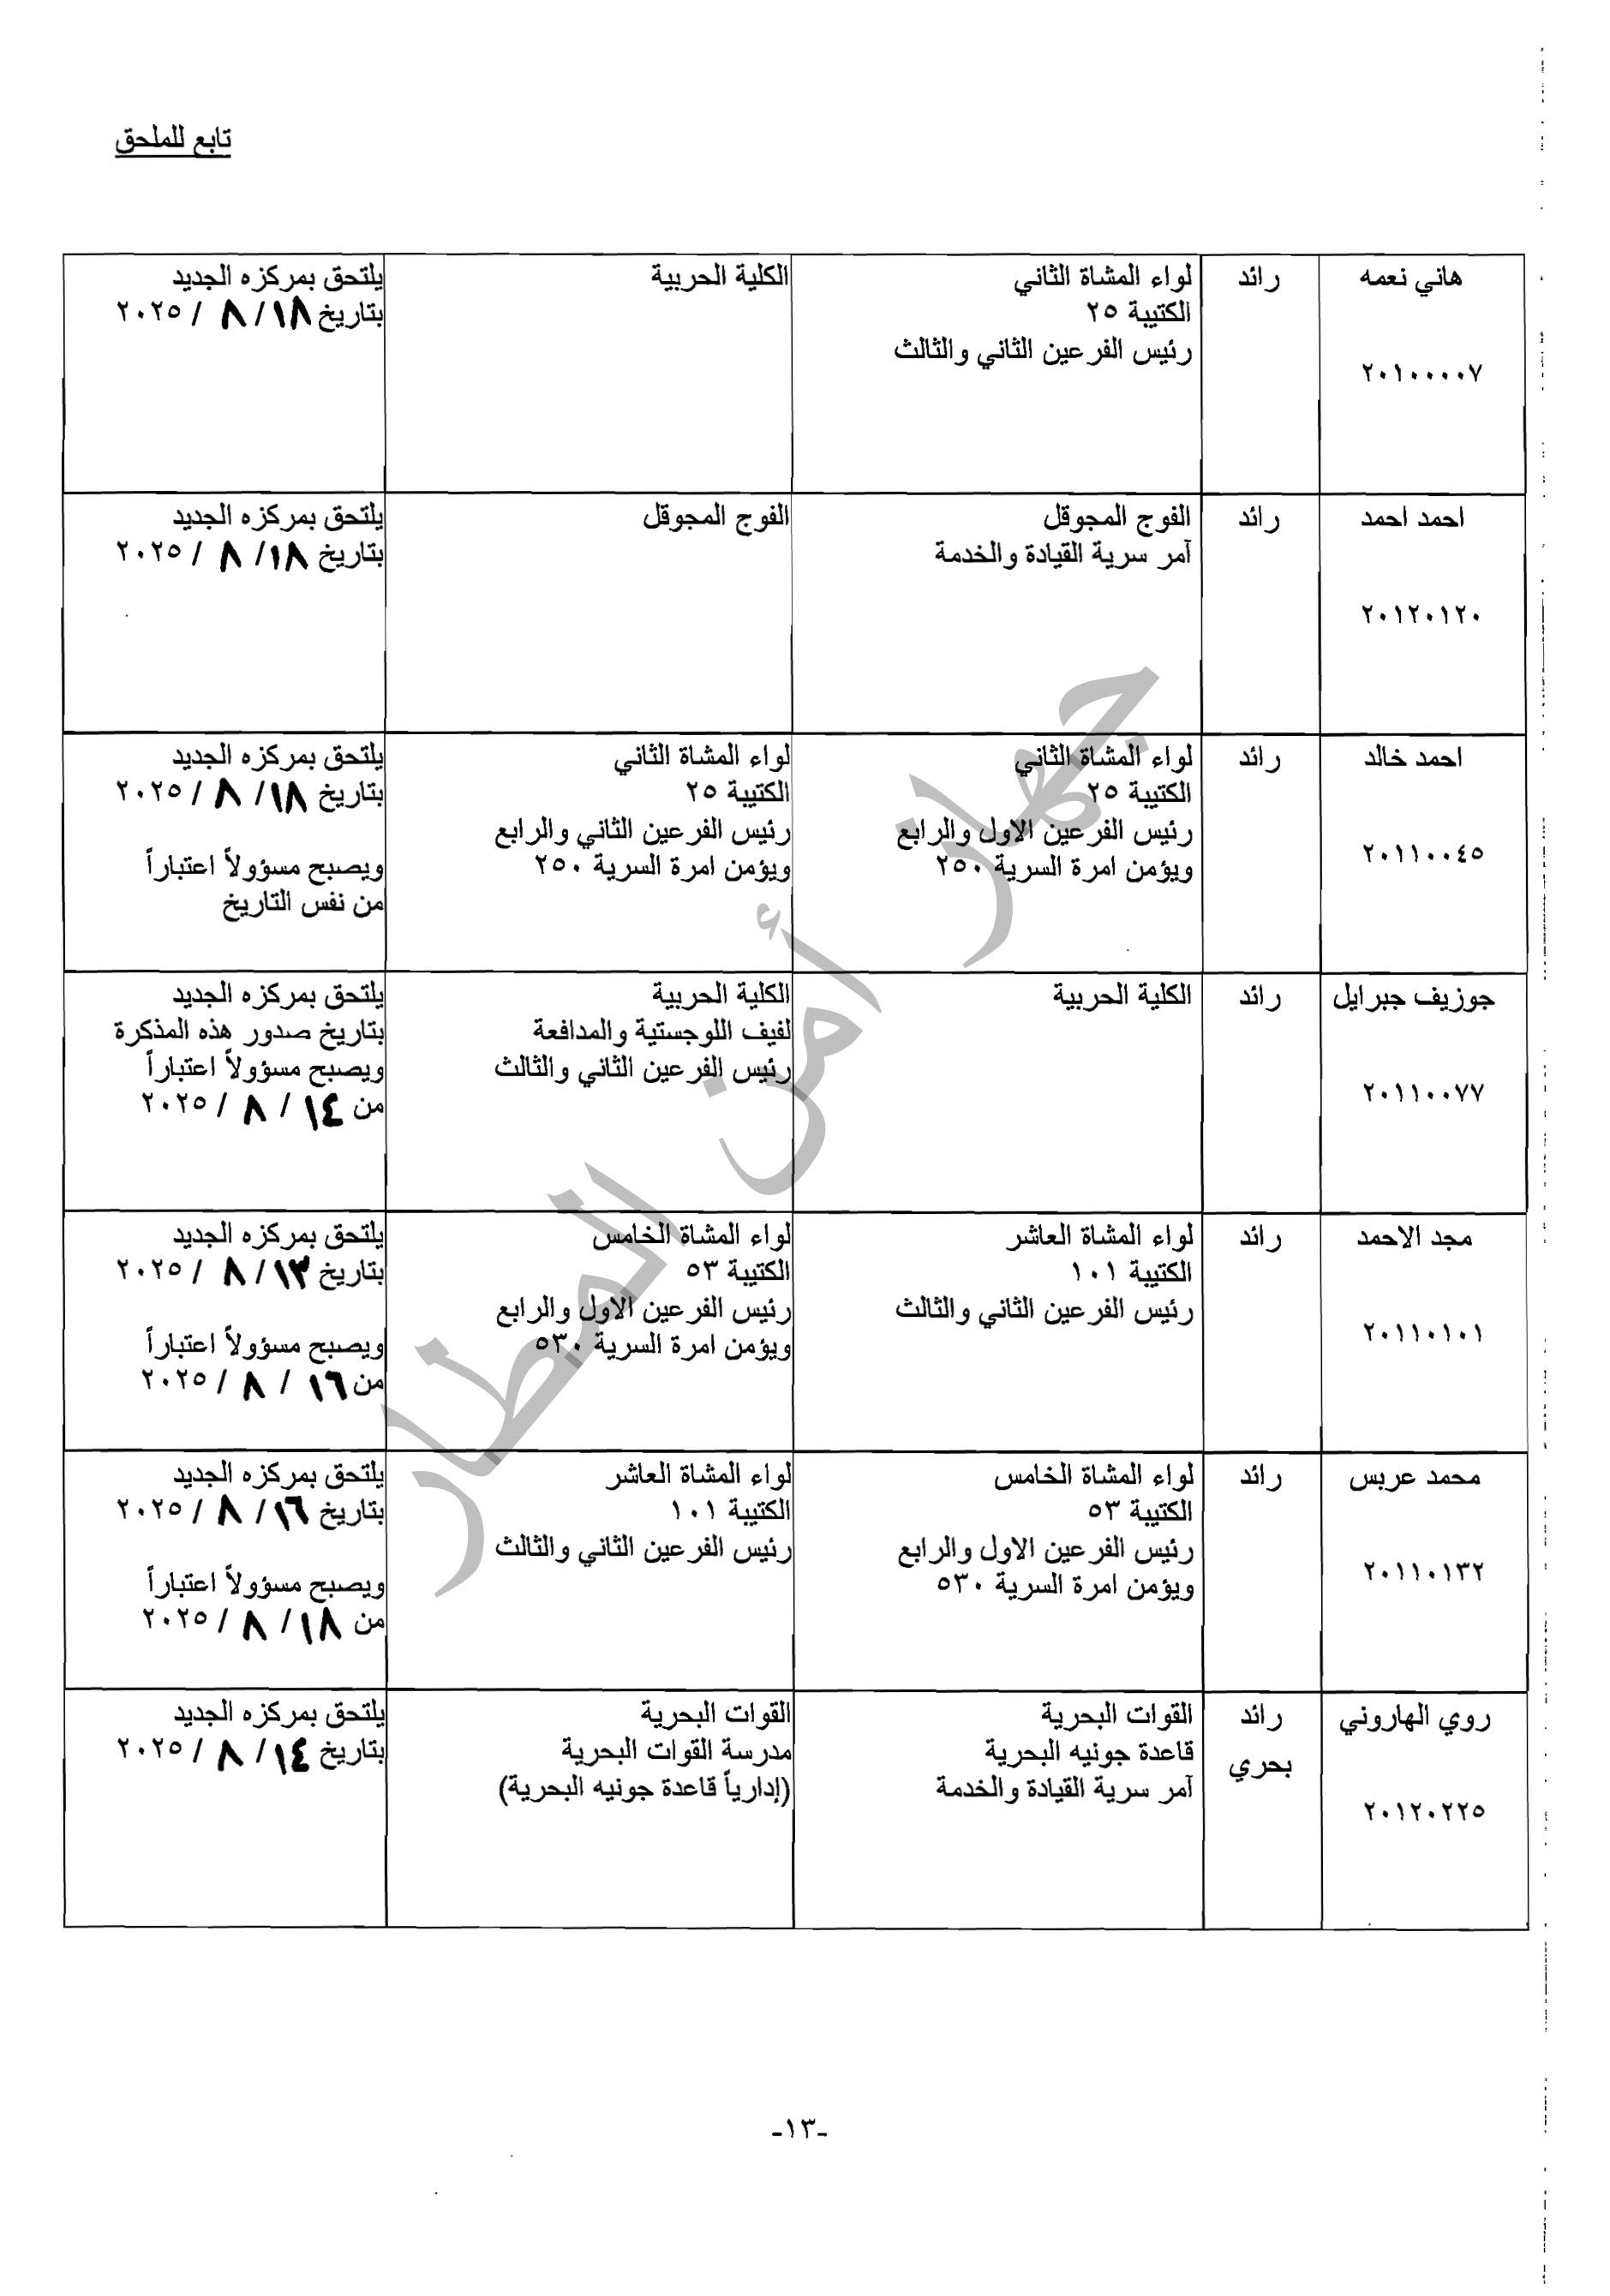 تابع للملحق
هاني نعمه
٢٠١٠٠٠٠٧
رائد
لواء المشاة الثاني
الكتيبة ٢٥
رئيس الفرعين الثاني والثالث
الكلية الحربية
يلتحق بمركزه الجديد
بتاريخ ١٨/ ٨ / ٢٠٢٥
احمد احمد
٢٠١٢٠١٢٠
رائد
الفوج المجوقل
آمر سرية القيادة والخدمة
الفوج المجوقل
يلتحق بمركزه الجديد
بتاريخ ١٨/ ٨ / ٢٠٢٥
احمد خالد
٢٠١١٠٠٤٥
رائد
لواء المشاة الثاني
الكتيبة ٢٥
رئيس الفرعين الاول والرابع
ويؤمن امرة السرية ٢٥٠
لواء المشاة الثاني
الكتيبة ٢٥
رئيس الفرعين الثاني والرابع
ويؤمن امرة السرية ٢٥٠
يلتحق بمركزه الجديد
بتاريخ ١٨/ ٨ / ٢٠٢٥
ويصبح مسؤولاً اعتباراً
من نفس التاريخ
جوزيف جبرايل
٢٠١١٠٠٧٧
رائد
الكلية الحربية
الكلية الحربية
لفيف اللوجستية والمدافعة
رئيس الفرعين الثاني والثالث
يلتحق بمركزه الجديد
بتاريخ صدور هذه المذكرة
ويصبح مسؤولاً اعتباراً
من ١٤ / ٨ / ٢٠٢٥
مجد الاحمد
٢٠١١٠١٠١
رائد
لواء المشاة العاشر
الكتيبة ١٠١
رئيس الفرعين الثاني والثالث
لواء المشاة الخامس
الكتيبة ٥٣
رئيس الفرعين الاول والرابع
ويؤمن امرة السرية ٥٣٠
يلتحق بمركزه الجديد
بتاريخ ١٣/ ٨ / ٢٠٢٥
ويصبح مسؤولاً اعتباراً
من ١٦ / ٨ / ٢٠٢٥
محمد عربس
٢٠١١٠١٣٢
رائد
لواء المشاة الخامس
الكتيبة ٥٣
رئيس الفرعين الاول والرابع
ويؤمن امرة السرية ٥٣٠
لواء المشاة العاشر
الكتيبة ١٠١
رئيس الفرعين الثاني والثالث
يلتحق بمركزه الجديد
بتاريخ ١٦/ ٨ / ٢٠٢٥
ويصبح مسؤولاً اعتباراً
من ١٨/ ٨ / ٢٠٢٥
روي الهاروني
٢٠١٢٠٢٢٥
رائد
بحري
القوات البحرية
قاعدة جونيه البحرية
آمر سرية القيادة والخدمة
القوات البحرية
مدرسة القوات البحرية
(إدارياً قاعدة جونيه البحرية)
يلتحق بمركزه الجديد
بتاريخ ١٤/ ٨ / ٢٠٢٥
جهاز أمن المطار
-١٣-